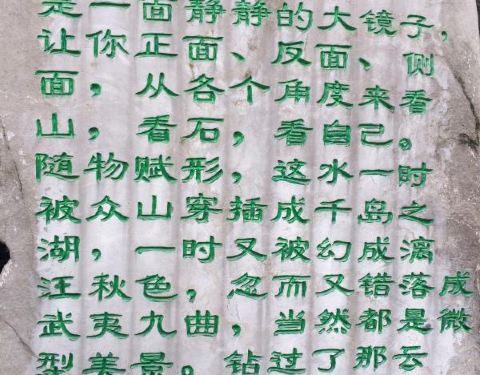 是一面静静的大镜子，
让你正面、反面、侧
面，从各个角度来看
山，看石，看自己。
随物赋形，这水一时
被众山穿插成千岛之
湖，一时又被幻成漓
汪秋色，忽而又错落成
武夷九曲，当然都是微
型美景。钻过了那云